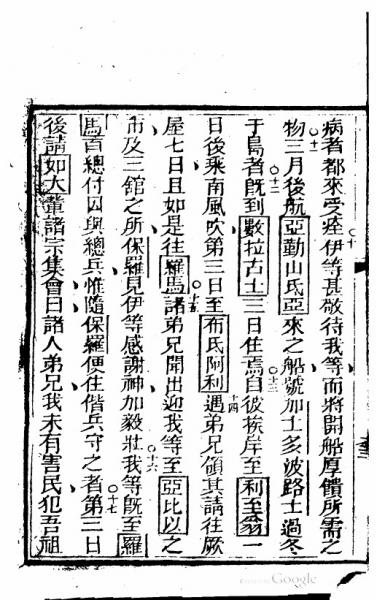 病者都來受痊伊等甚敬待我等而將開船厚饋所需之
物三月後航亞勒山氐亞來之船號加士多波路士過冬
于島者既到數拉古士三日住焉自彼挨岸至利至翁一
日後乘南風吹第三日至布氐阿利遇弟兄領其請住厥
屋七日且如是往羅馬諸弟兄聞出迎我等至亞比以之
市及三館之所保羅見伊等感謝神加毅壯我等既至羅
馬百總付囚與總兵惟隨保羅便住偕兵守之者第三日
後請如大輩諸宗集會曰諸人弟兄我未有害民犯吾祖
Google